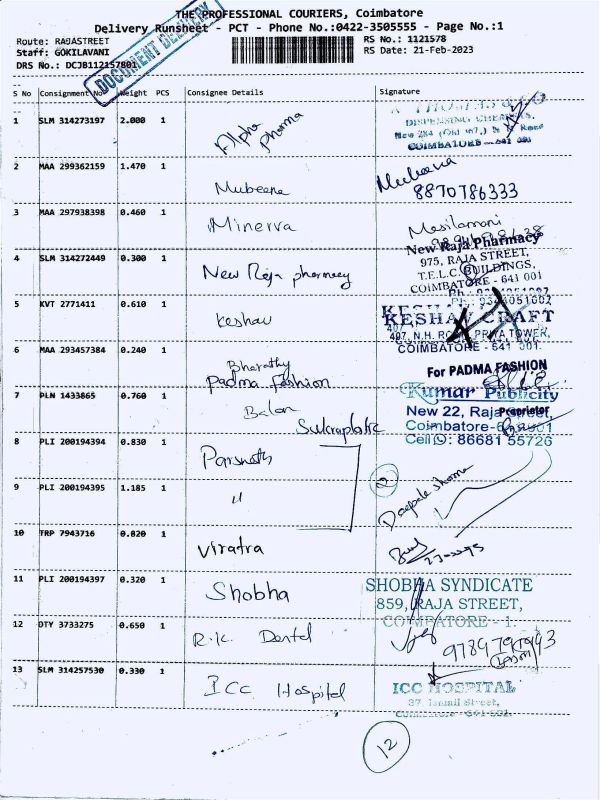 THE PROFESSIONAL COURIERS, Coimbatore
Delivery Runsheet - PCT - Phone No.:0422-3505555 - Page No.:1
Route: RAJASTREET
RS No.: 1121578
Staff: GOKILAVANI
RS Date: 21-Feb-2023
DRS No.: DCJB112157801
DOCUMENT DELIVERY
S No Consignment No Weight PCS Consignee Details Signature
1 SLM 314273197 2.000 1 Alpha pharma
DISPENSING CHEMISTS,
COIMBATORE - 641 001
2 MAA 299362159 1.470 1 Mubeena Mubeena
8870786333
3 MAA 297938398 0.460 1 Minerva Masilamani
4 SLM 314272449 0.300 1 New Raja pharmacy New Raja Pharmacy
975, RAJA STREET,
T.E.L.C. BUILDINGS,
COIMBATORE - 641 001
5 KVT 2771411 0.610 1 Keshav KESHAV CRAFT
407, N.H. ROAD, PRIYA TOWER,
COIMBATORE - 641 001.
6 MAA 293457384 0.240 1 Bharathy
Padma Fashion For PADMA FASHION
Proprietor
7 PLN 1433865 0.760 1 Balan Kumar Publicity
New 22, Raja Street,
Coimbatore-641001
Cell : 86681 55726
8 PLI 200194394 0.830 1 Parsnath
9 PLI 200194395 1.185 1 "
2 Deepak sharma
10 TRP 7943716 0.820 1 Viratra
11 PLI 200194397 0.320 1 Shobha SHOBHA SYNDICATE
859, RAJA STREET,
COIMBATORE - 1.
12 DTY 3733275 0.650 1 R.K. Dental
13 SLM 314257530 0.330 1 ICC Hospital ICC HOSPITAL
37, Ismail Street,
Coimbatore - 641 001.
12